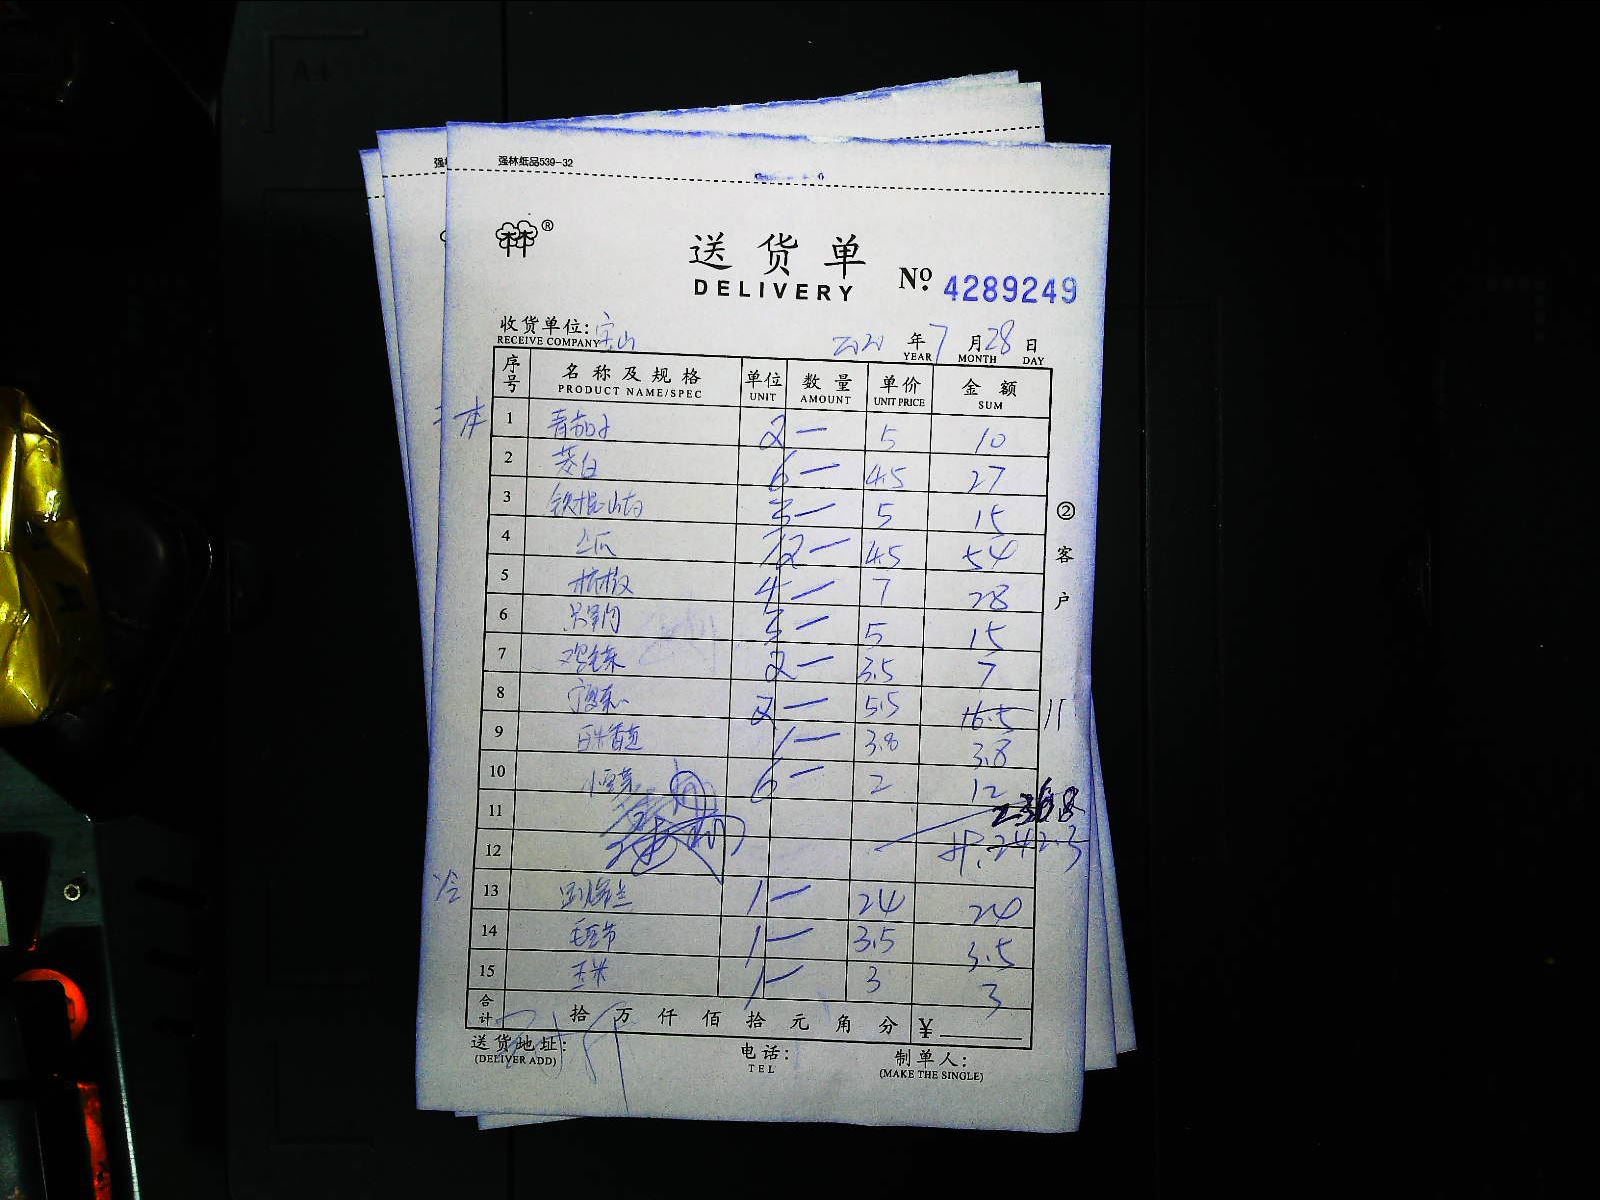 强林纸品539-32
林®
送货单
DELIVERY
№ 4289249
收货单位: 宝山
RECEIVE COMPANY
年 7 月 28 日
YEAR MONTH DAY
序号 名称及规格 单位 数量 单价 金额
PRODUCT NAME/SPEC UNIT AMOUNT UNIT PRICE SUM
1 青茄子 2 — 5 10
2 茭白 6 — 4.5 27
3 铁棍山药 3 — 5 15
4 12 — 4.5 54
5 杭椒 4 — 7 28
6 3 — 5 15
7 2 — 3.5 7
8 2 — 5.5 16.5 11
9 1 — 3.8 3.8
10 小豆芽 6 — 2 12
11 236.8
12 242.3
冷
13 1 — 24 24
14 毛豆节 1 — 3.5 3.5
15 玉米 1 — 3 3
合计 拾 万 仟 佰 拾 元 角 分 ¥
送货地址: 电话: 制单人:
(DELIVER ADD) TEL (MAKE THE SINGLE)
②客户